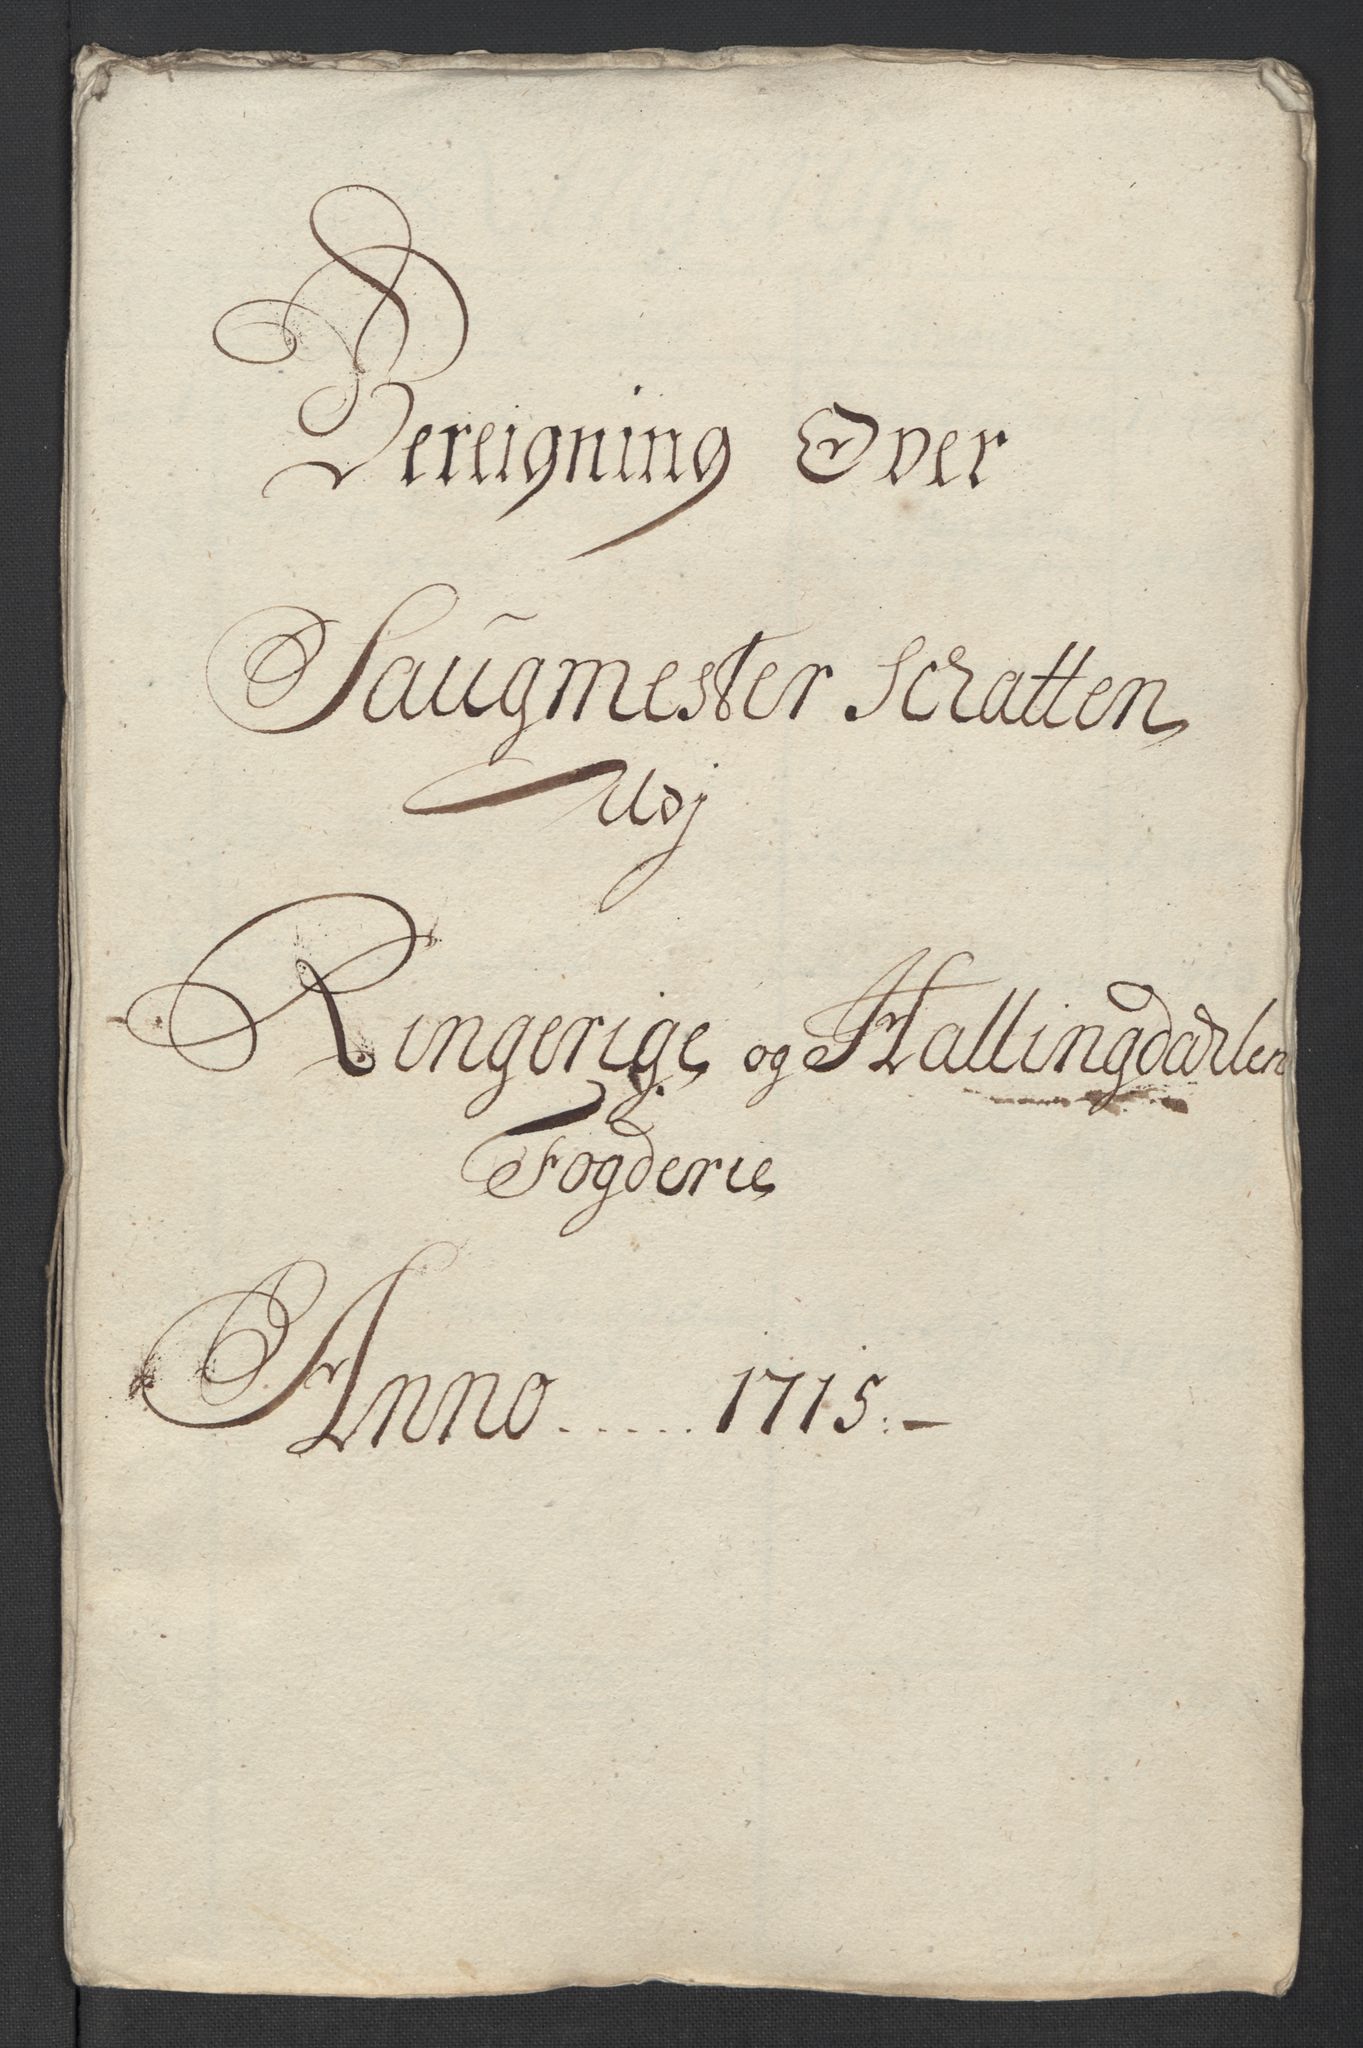 Bereigning Over
Saugmester Schatten
Udj
Ringerige og Hallingdahlen
Fogderie
Anno ..... 1715. —